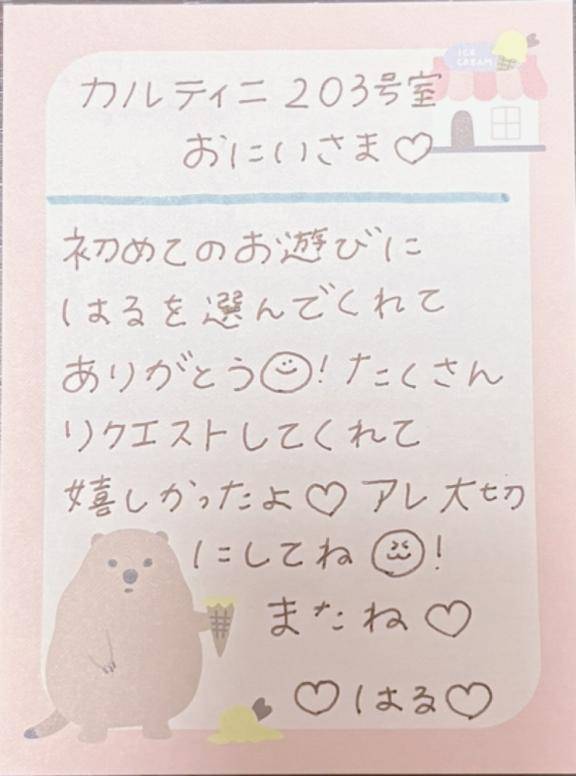 ICE
CREAM
カルティニ 203号室
おにいさま♡
初めてのお遊びに
はるを選んでくれて
ありがとう☺!たくさん
リクエストしてくれて
嬉しかったよ♡ アレ大切
にしてね😈!
またね♡
♡はる♡